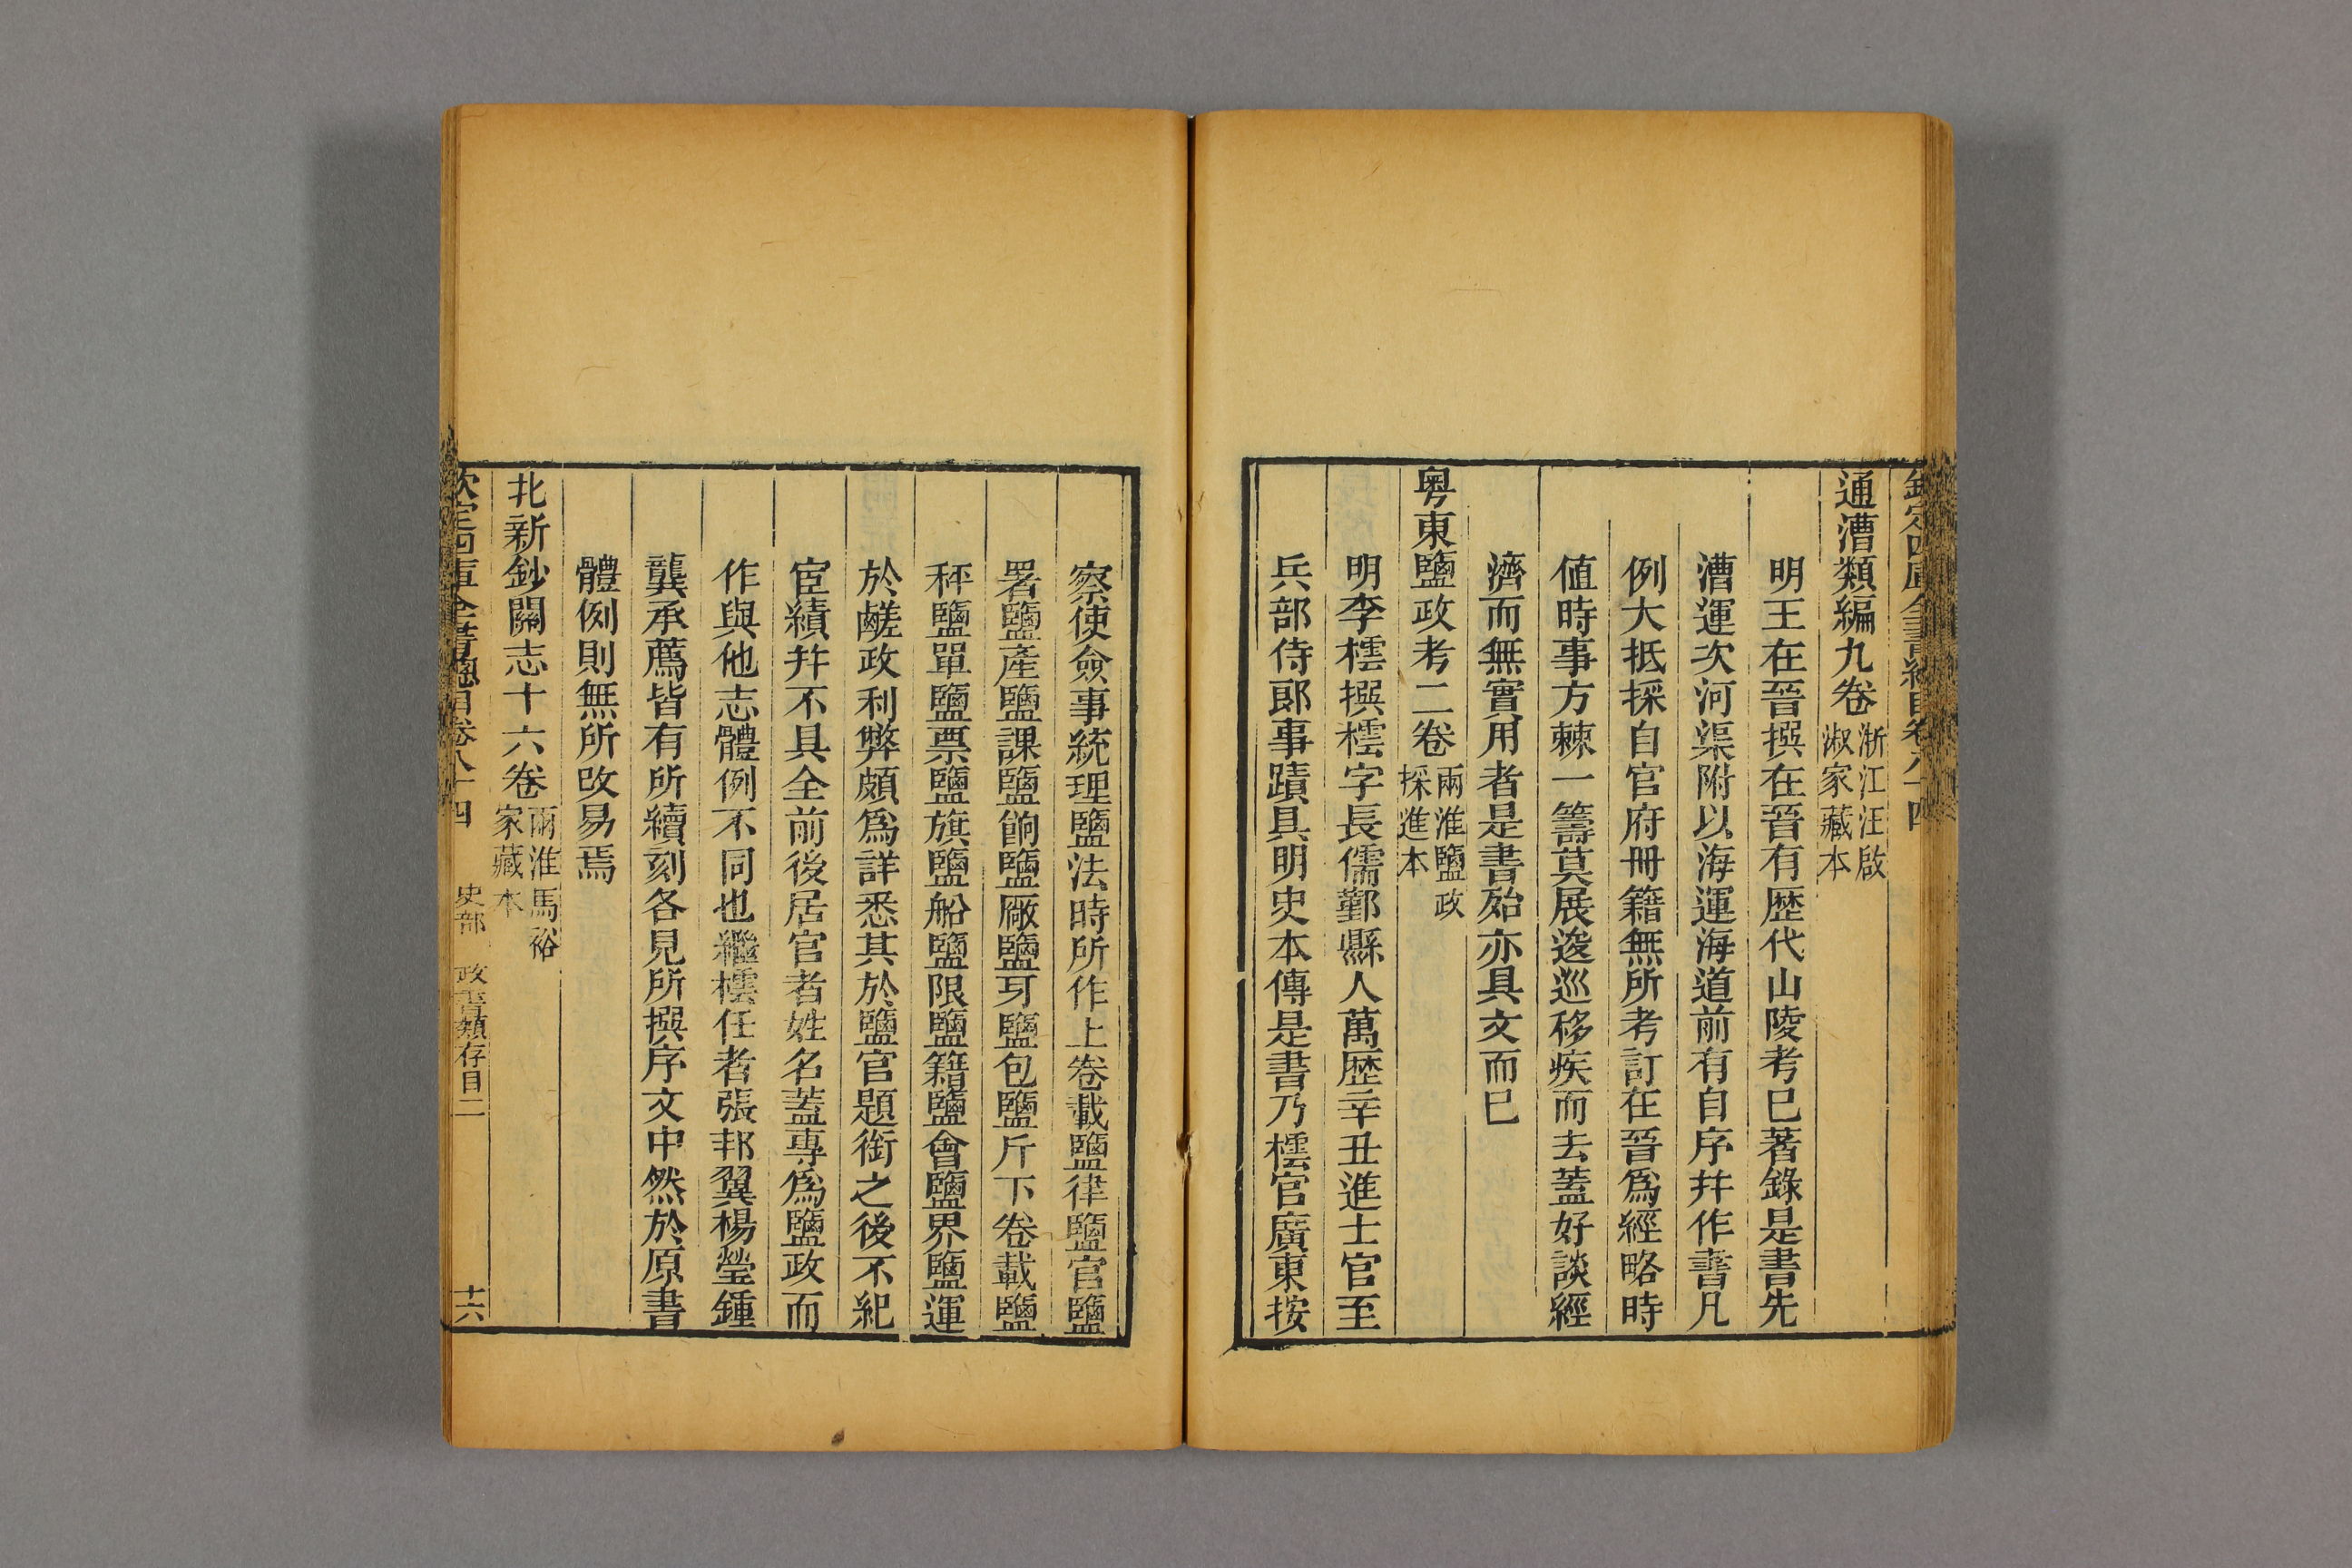 欽定四庫全書總目卷八十四
通漕類編九卷 浙江汪啟
淑家藏本
明王在晉撰在晉有歷代山陵考已著錄是書先
漕運次河渠附以海運海道前有自序幷作書凡
例大抵採自官府冊籍無所考訂在晉爲經略時
值時事方棘一籌莫展逡巡移疾而去蓋好談經
濟而無實用者是書殆亦具文而已
粵東鹽政考二卷 兩淮鹽政
採進本
明李橒撰橒字長儒鄞縣人萬歷辛丑進士官至
兵部侍郎事蹟具明史本傳是書乃橒官廣東按
察使僉事統理鹽法時所作上卷載鹽律鹽官鹽
署鹽產鹽課鹽餉鹽廠鹽牙鹽包鹽斤下卷載鹽
秤鹽單鹽票鹽旗鹽船鹽限鹽籍鹽會鹽界鹽運
於鹺政利弊頗爲詳悉其於鹽官題銜之後不紀
宦績幷不具全前後居官者姓名蓋專爲鹽政而
作與他志體例不同也繼橒任者張邦翼楊瑩鍾
龔承薦皆有所續刻各見所撰序文中然於原書
體例則無所改易焉
北新鈔關志十六卷 兩淮馬裕
家藏本
欽定四庫全書總目卷八十四 史部 政書類存目二 十六